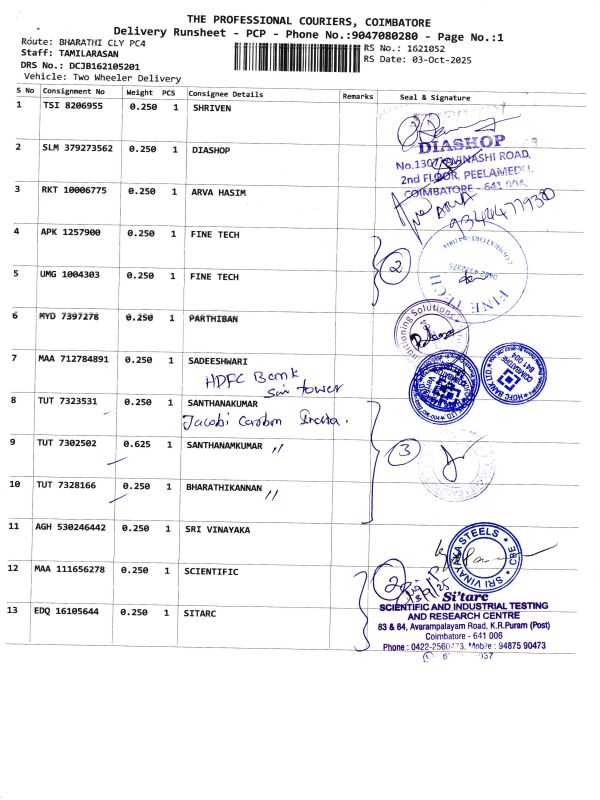 THE PROFESSIONAL COURIERS, COIMBATORE
Delivery Runsheet - PCP - Phone No.:9047080280 - Page No.:1
Route: BHARATHI CLY PC4
RS No.: 1621052
Staff: TAMILARASAN
RS Date: 03-Oct-2025
DRS No.: DCJB162105201
Vehicle: Two Wheeler Delivery
S No Consignment No Weight PCS Consignee Details Remarks Seal & Signature
1 TSI 8206955 0.250 1 SHRIVEN
2 SLM 379273562 0.250 1 DIASHOP
DIASHOP
AVINASHI ROAD,
2nd FLOOR, PEELAMEDU,
COIMBATORE - 641 004.
3 RKT 10006775 0.250 1 ARVA HASIM
4 APK 1257900 0.250 1 FINE TECH
2
FINE TECH
5 UMG 1004303 0.250 1 FINE TECH
6 MYD 7397278 0.250 1 PARTHIBAN
7 MAA 712784891 0.250 1 SADEESHWARI
HDFC Bank
Sai tower
HDFC BANK LTD
COIMBATORE
641 004
8 TUT 7323531 0.250 1 SANTHANAKUMAR
Jacobi Carbon
9 TUT 7302502 0.625 1 SANTHANAMKUMAR //
3
10 TUT 7328166 0.250 1 BHARATHIKANNAN //
11 AGH 530246442 0.250 1 SRI VINAYAKA
SRI VINAYAKA STEELS * CBE *
12 MAA 111656278 0.250 1 SCIENTIFIC
2
13 EDQ 16105644 0.250 1 SITARC
Si'tarc
SCIENTIFIC AND INDUSTRIAL TESTING
AND RESEARCH CENTRE
83 & 84, Avarampalayam Road, K.R.Puram (Post)
Coimbatore - 641 006
Mobile : 94875 90473